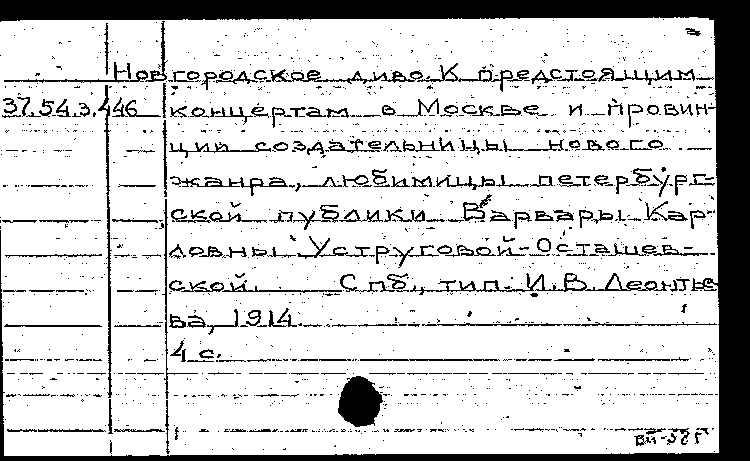 Новгородское диво. К предстоящим
37.54.3.446 концертам в Москве и провин-
ции создательницы нового
жанра, любимицы петербург-
ской публики Варвары Кар-
ловны Уструговой-Осташев-
ской. Спб., тип. И.В. Леонтье-
ва, 1914.
4 с.